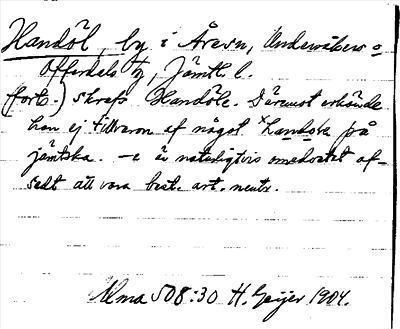 Handöl, by i Åresn, Undersåkers o
Offerdals tg, Jämtl. l.
(forts.) skrefs Handöle. Däremot erkände
han ej tillvaron af något ˣHandska på
jämtska. -e är naturligtvis omedvetet af-
sedt att vara best. art. neutr.
Ulma 508:30 H. Geijer 1904.